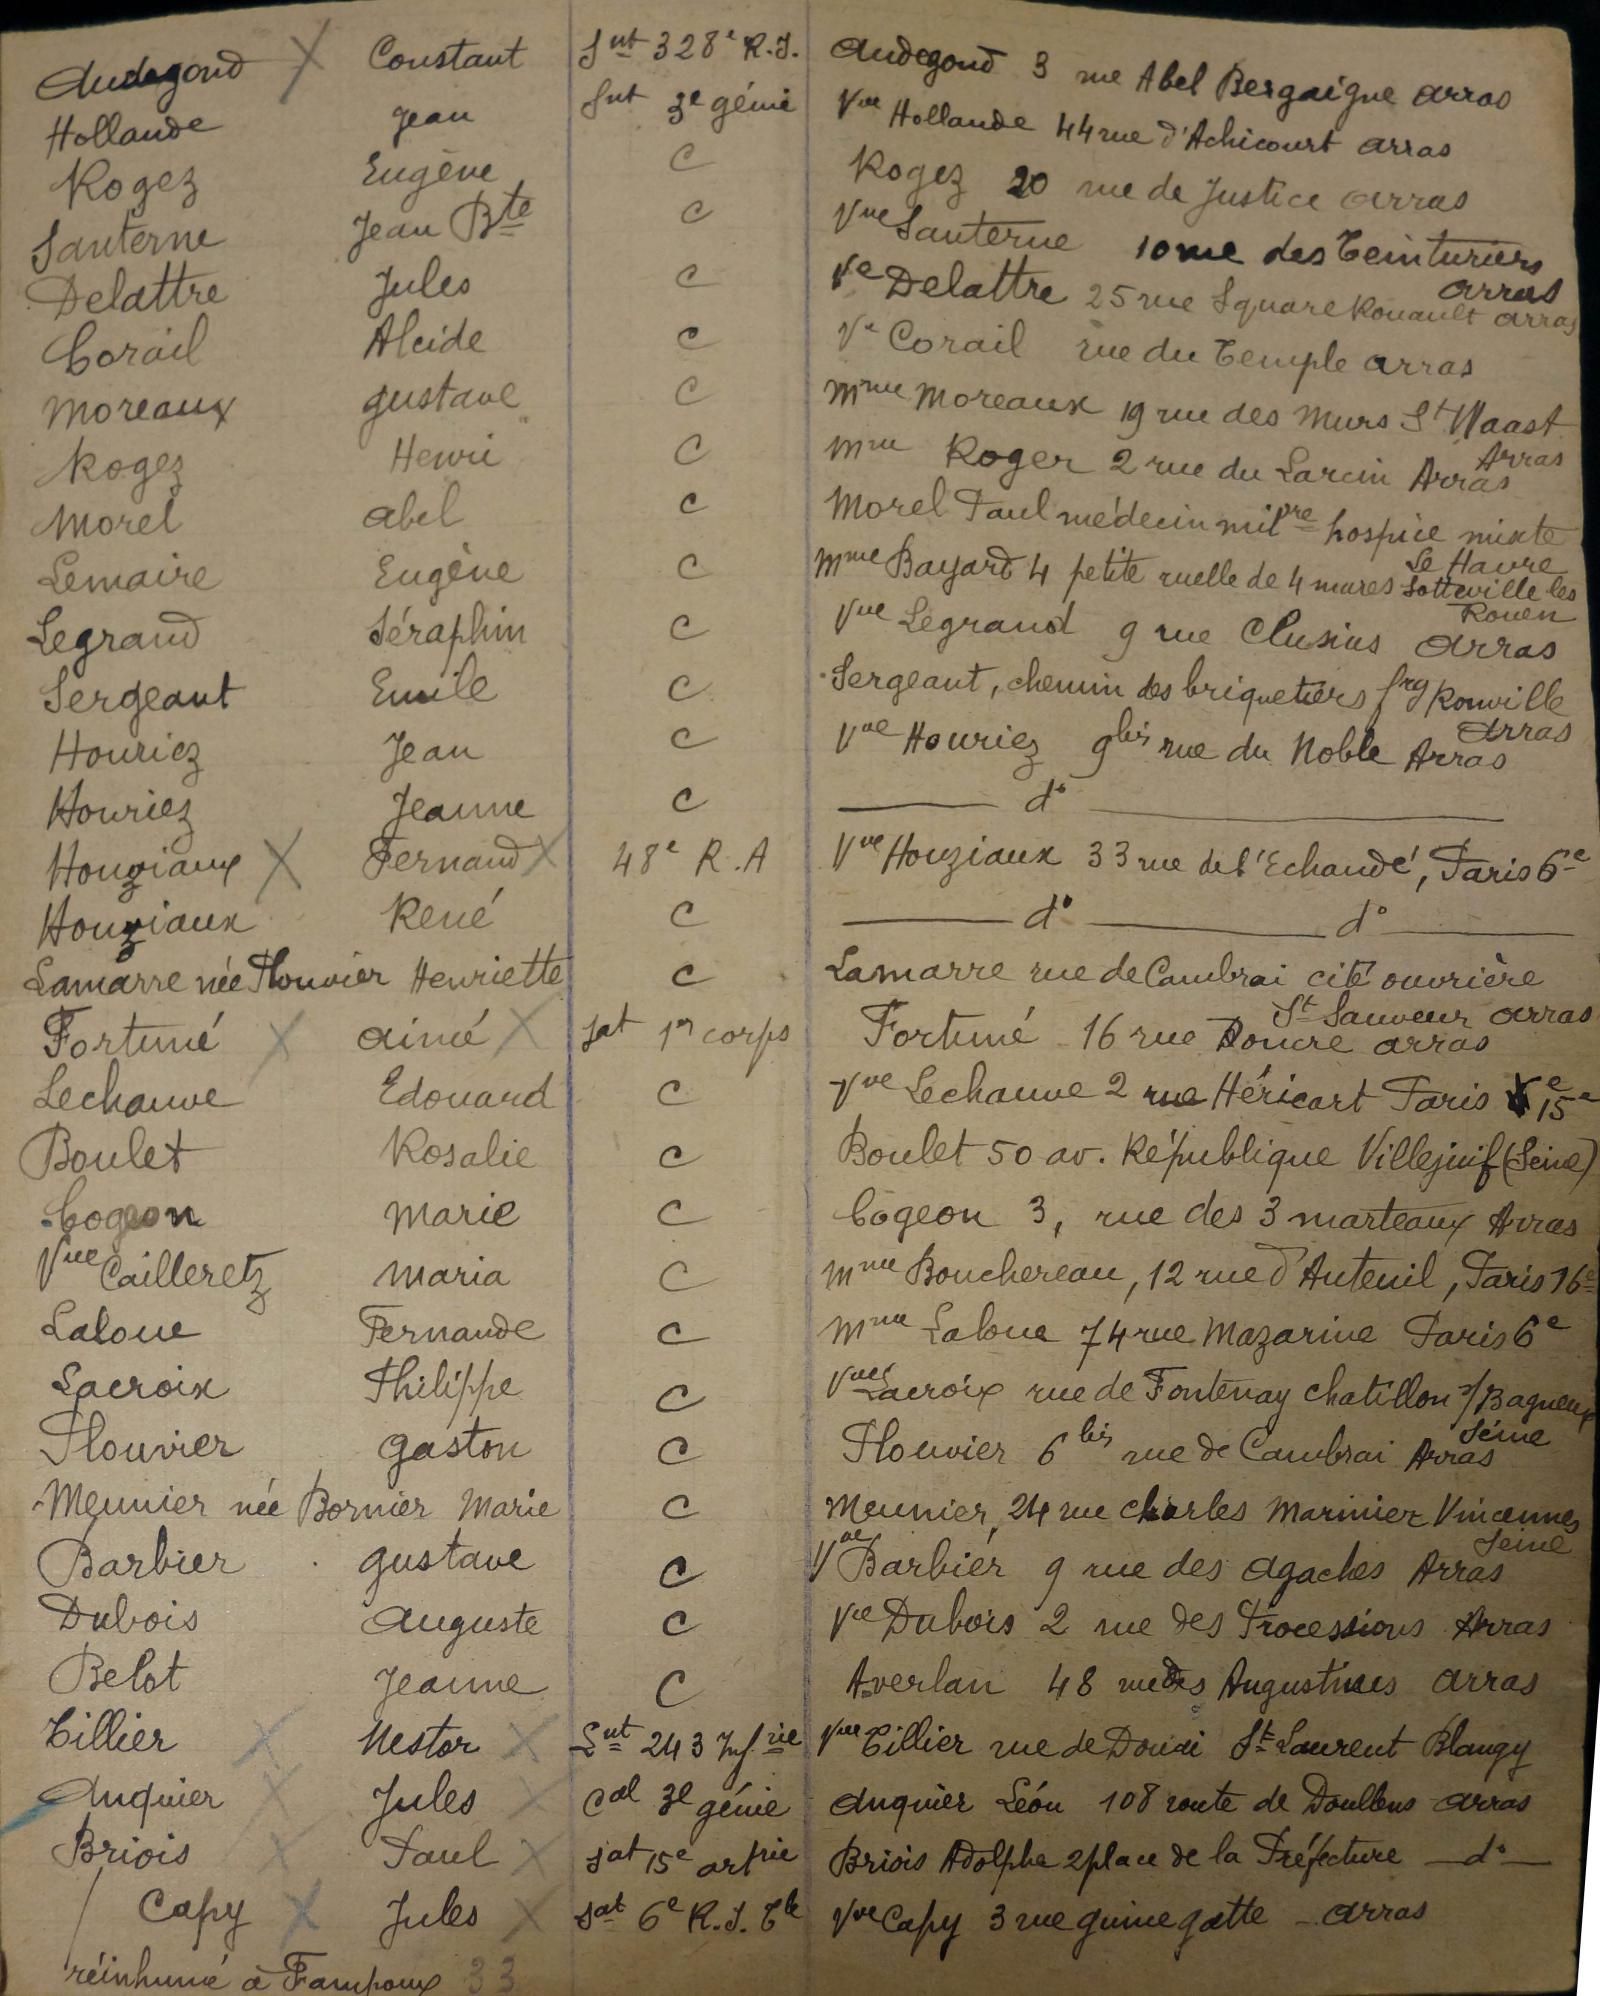 Audegond X Constant Snt 328e R.I. Audegond 3 rue Abel Bergaigne Arras
Hollande Jean Snt 3e génie Vve Hollande 44 rue d'Achicourt Arras
Rogez Eugène C Rogez 20 rue de Justice Arras
Santerne Jean Bte C Vve Santerne 10 rue des Teinturiers
Arras
Delattre Jules C Ve Delattre 25 rue Square Rouault Arras
Corail Alcide C Ve Corail rue du Temple Arras
Moreaux Gustave C Mme Moreaux 19 rue des Murs St Waast
Arras
Rogez Henri C Mme Roger 2 rue du Larcin Arras
Morel Abel C Morel Paul médecin milre hospice mixte
Le Havre
Lemaire Eugène C Mme Bayard 4 petite ruelle de 4 mares Sotteville les
Rouen
Legrand Séraphin C Vve Legrand 9 rue Clusius Arras
Sergeant Emile C Sergeant, chemin des briquetiers fbg Ronville
Arras
Houriez Jean C Vve Houriez 9bis rue du Noble Arras
Houriez Jeanne C d°
Houziaux X Fernand X 48e R.A Vve Houziaux 33 rue de l'Echaudé, Paris 6e
Houziaux René C d° d°
Lamarre née Plouvier Henriette C Lamarre rue de Cambrai cité ouvrière
St Sauveur Arras
Fortuné X Aimé X Sat 1er corps Fortuné 16 rue Doncre Arras
Lechauve Edouard C Vve Lechauve 2 rue Héricart Paris 15e
Boulet Rosalie C Boulet 50 av. République Villejuif (Seine)
Cogeon Marie C Cogeon 3, rue des 3 marteaux Arras
Vve Cailleretz Maria C Mme Bouchereau, 12 rue d'Auteuil, Paris 16e
Laloue Fernande C Mme Laloue 74 rue Mazarine Paris 6e
Lacroix Philippe C Vve Lacroix rue de Fontenay Chatillon s/Bagneux
Seine
Plouvier Gaston C Plouvier 6 bis rue de Cambrai Arras
Meunier née Bornier Marie C Meunier, 24 rue Charles Marinier Vincennes
Seine
Barbier Gustave C Vve Barbier 9 rue des Agaches Arras
Dubois Auguste C Vve Dubois 2 rue des Processions Arras
Belot Jeanne C Averlan 48 rue des Augustines Arras
Tillier X Nestor X Snt 243 Infrie Vve Tillier rue de Douai St Laurent Blangy
Anquier X Jules X Cal 3e génie Anquier Léon 108 route de Doullens Arras
Briois X Paul X Sat 15e artrie Briois Adolphe 2 place de la Préfecture d°
Capy X Jules X Sat 6e R.I. Tle Vve Capy 3 rue Guinegatte Arras
réinhumé à Fampoux 33